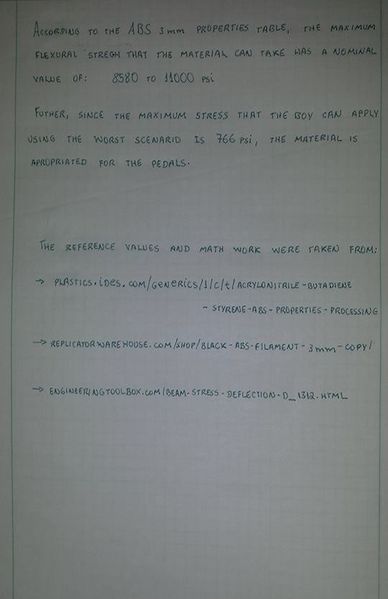 ACCORDING TO THE ABS 3mm PROPERTIES TABLE, THE MAXIMUM
FLEXURAL STREGH THAT THE MATERIAL CAN TAKE HAS A NOMINAL
VALUE OF: 8580 TO 11000 PSi
FUTHER, SINCE THE MAXIMUM STRESS THAT THE BOY CAN APPLY
USING THE WORST SCENARIO IS 766 PSi, THE MATERIAL IS
APROPRIATED FOR THE PEDALS.
THE REFERENCE VALUES AND MATH WORK WERE TAKEN FROM:
→ PLASTICS.ides.COM/GENERICS/1/C/t/ACRYLONITRILE-BUTADIENE
- STYRENE-ABS-PROPERTIES-PROCESSING
→ REPLICATORWAREHOUSE.COM/SHOP/BLACK-ABS-FILAMENT-3mm-COPY/
→ ENGINEERINGTOOLBOX.COM/BEAM-STRESS-DEFLECTION-D_1312.HTML